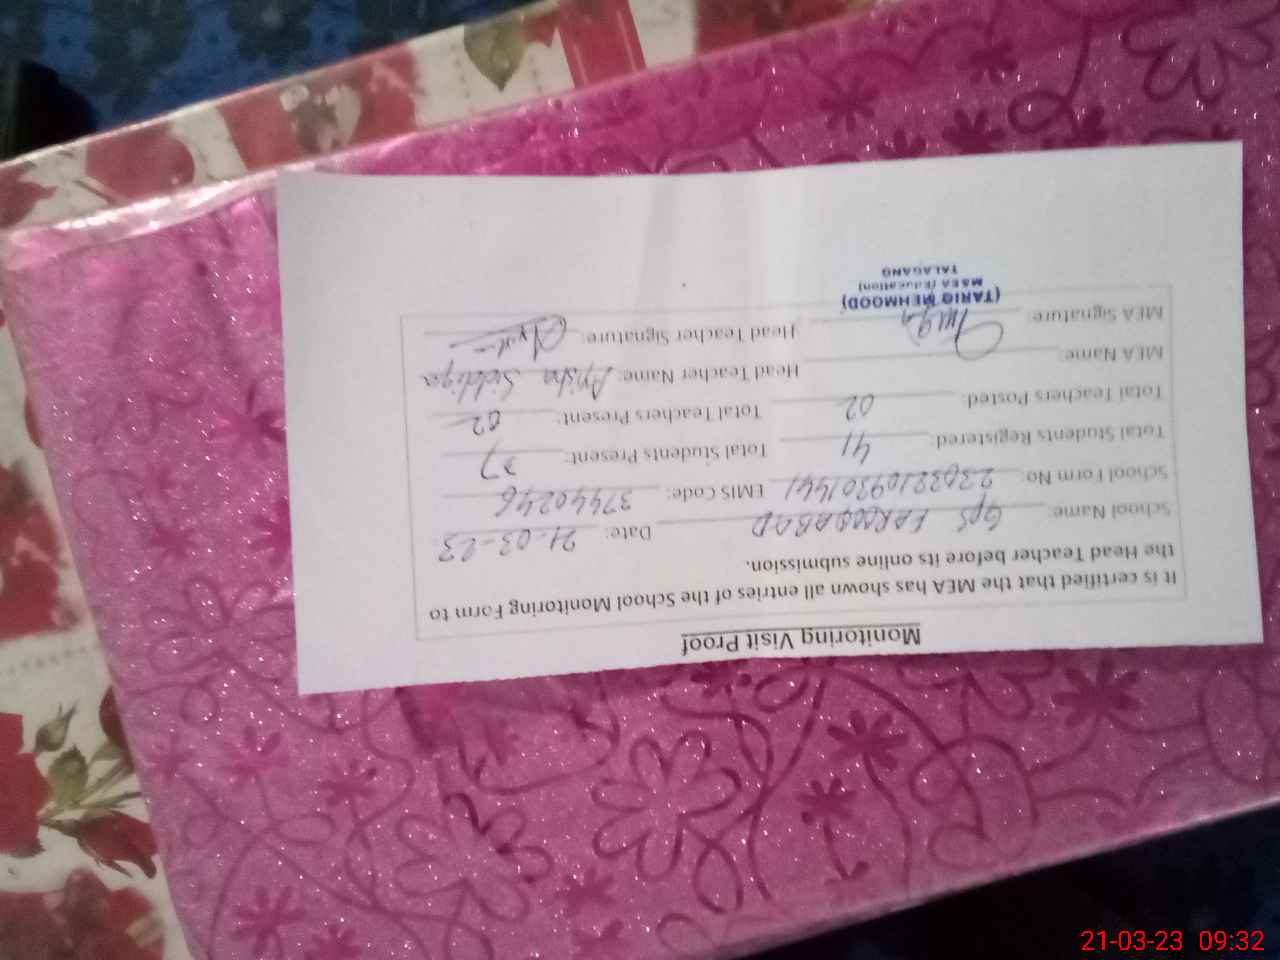 Monitoring Visit Proof
It is certified that the MEA has shown all entries of the School Monitoring Form to
the Head Teacher before its online submission.
School Name: GPS FAROOQABAD Date: 21-03-23
School Form No: EMIS Code: 37440246
Total Students Registered: 41 Total Students Present: 37
Total Teachers Posted: 02 Total Teachers Present: 02
MEA Name: Head Teacher Name: Ayisha Siddiqa
MEA Signature: Head Teacher Signature:
(TARIQ MEHMOOD)
M&EA (Education)
TALAGANG
21-03-23 09:32